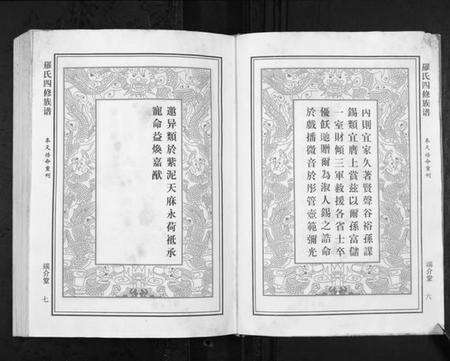 羅氏四修族譜
奉天誥命重刊
內則宜家久著賢聲谷裕孫謀
錫類宜膺上賞茲以爾孫富儲
一室財傾三軍救援各省士卒
優飫地贈爾為淑人錫之誥命
於戲播微音於彤管壺範彌光
瑞介堂
六
羅氏四修族譜
奉天誥命重刊
邀异類於紫泥天庥永荷祗承
寵命益煥嘉猷
瑞介堂
七